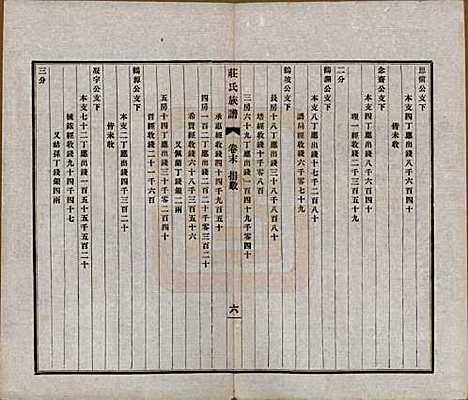 思傭公支下
本支四丁應出錢八千六百四十
皆未收
念齋公支下
本支四丁應出錢八千六百四十
理一經收錢三千五十九
二分
鶴瀾公支下
本支八丁應出錢十七千二百八十
譜局經收錢六千零七十九
鶴坡公支下
長房十八丁應出錢三十八千八百八十
培經收錢十千零八百
三房六十九丁應出錢一百四十九千零四十
承惠經收錢四十四千九百五十
莊氏族譜
卷末
捐數
六
四房一百零二丁應出錢二百二十千零三百二十
希賢經收錢一百十八千三百五十六
又佩蘅丁錢銀二兩
五房十四丁應出錢三十千零二百四十
晉經收錢二十一千六百
鶴源公支下
本支二丁應出錢四千三百二十
皆未收
凝宇公支下
本支七十二丁應出錢一百五十五千五百二十
毓崧經收錢九十四千四十七
又祜孫丁錢銀四兩
三分